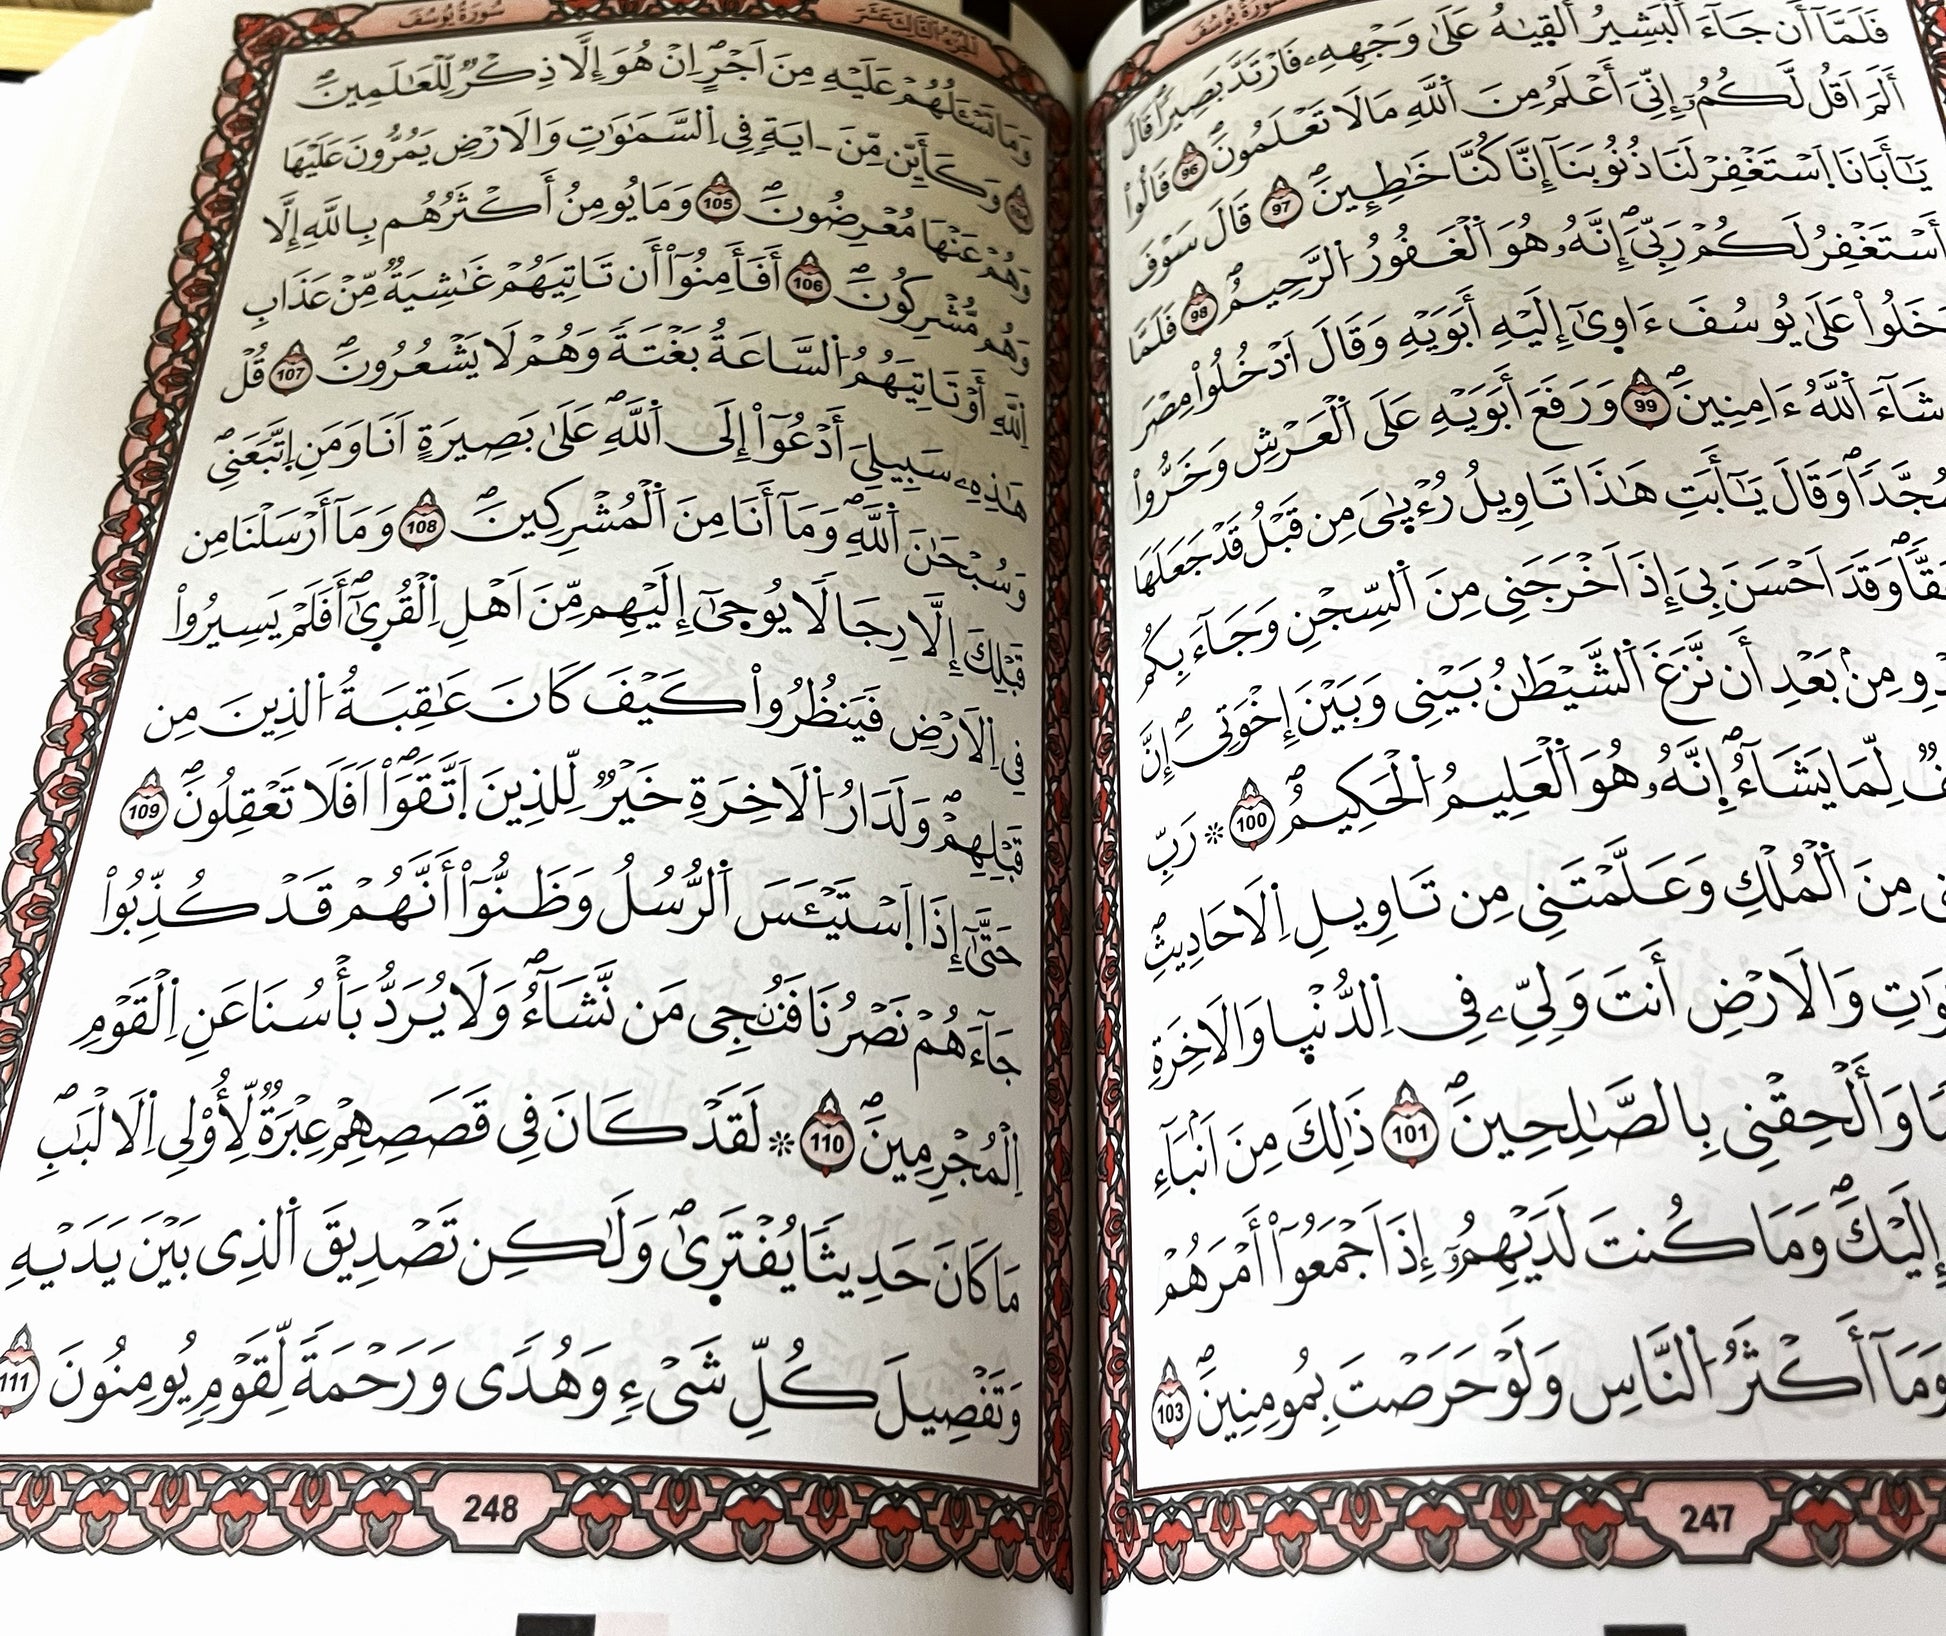 سُورَةُ يُوسُفَ
فَلَمَّآ أَن جَآءَ اَ۬لْبَشِيرُ أَلْق۪يٰهُ عَلَىٰ وَجْهِهِۦ فَارْتَدَّ بَصِيراٗۖ قَالَ
أَلَمَ اَقُل لَّكُمُۥٓ إِنِّيَ أَعْلَمُ مِنَ اَ۬للَّهِ مَا لَا تَعْلَمُونَۖ 96 قَالُواْ
يَٰٓأَبَانَا اَ۪سْتَغْفِرْ لَنَا ذُنُوبَنَآ إِنَّا كُنَّا خَٰطِـِٕينَۖ 97 قَالَ سَوْفَ
أَسْتَغْفِرُ لَكُمْ رَبِّيَۖ إِنَّهُۥ هُوَ اَ۬لْغَفُورُ اُ۬لرَّحِيمُۖ 98 فَلَمَّا
دَخَلُواْ عَلَىٰ يُوسُفَ ءَاو۪يٰٓ إِلَيْهِ أَبَوَيْهِ وَقَالَ اَ۟دْخُلُواْ مِصْرَ
شَآءَ اَ۬للَّهُ ءَامِنِينَۖ 99 وَرَفَعَ أَبَوَيْهِ عَلَى اَ۬لْعَرْشِ وَخَرُّواْ
سُجَّداٗۖ وَقَالَ يَٰٓأَبَتِ هَٰذَا تَاوِيلُ رُءْيٰ۪يَ مِن قَبْلُ قَدْ جَعَلَهَا
حَقّاٗۖ وَقَدَ اَحْسَنَ بِيَ إِذَ اَخْرَجَنِي مِنَ اَ۬لسِّجْنِ وَجَآءَ بِكُم
مِنۢ بَعْدِ أَن نَّزَغَ اَ۬لشَّيْطَٰنُ بَيْنِي وَبَيْنَ إِخْوَتِيَۖ إِنَّ
لِّمَا يَشَآءُۖ اِ۪نَّهُۥ هُوَ اَ۬لْعَلِيمُ اُ۬لْحَكِيمُۖ 100 ۞ رَبِّ
مِنَ اَ۬لْمُلْكِ وَعَلَّمْتَنِي مِن تَاوِيلِ اِ۬لَاحَادِيثِۖ
وَالَارْضِ أَنتَ وَلِيِّۦ فِي اِ۬لدُّنْي۪ا وَالَاخِرَةِ
وَأَلْحِقْنِي بِالصَّٰلِحِينَۖ 101 ذَٰلِكَ مِنَ اَنۢبَآءِ
إِلَيْكَۖ وَمَا كُنتَ لَدَيْهِمُۥٓ إِذَ اَجْمَعُوٓاْ أَمْرَهُمْ
وَمَآ أَكْثَرُ اُ۬لنَّاسِ وَلَوْ حَرَصْتَ بِمُومِنِينَۖ 103
247
سُورَةُ يُوسُفَ
اَلْجُزْءُ الثَّالِثَ عَشَرَ
وَمَا تَسْـَٔلُهُمْ عَلَيْهِ مِنَ اَجْرٍۖ اِنْ هُوَ إِلَّا ذِكْرٞ لِّلْعَٰلَمِينَۖ
وَكَأَيِّن مِّنَ ـ ايَةٖ فِي اِ۬لسَّمَٰوَٰتِ وَالَارْضِ يَمُرُّونَ عَلَيْهَا
وَهُمْ عَنْهَا مُعْرِضُونَۖ 105 وَمَا يُومِنُ أَكْثَرُهُم بِاللَّهِ إِلَّا
وَهُم مُّشْرِكُونَۖ 106 أَفَأَمِنُوٓاْ أَن تَاتِيَهُمْ غَٰشِيَةٞ مِّنْ عَذَابِ
اِ۬للَّهِ أَوْ تَاتِيَهُمُ اُ۬لسَّاعَةُ بَغْتَةٗ وَهُمْ لَا يَشْعُرُونَۖ 107 قُلْ
هَٰذِهِۦ سَبِيلِيَ أَدْعُوٓاْ إِلَى اَ۬للَّهِۖ عَلَىٰ بَصِيرَةٍ اَنَا وَمَنِ اِ۪تَّبَعَنِيۖ
وَسُبْحَٰنَ اَ۬للَّهِۖ وَمَآ أَنَا مِنَ اَ۬لْمُشْرِكِينَۖ 108 وَمَآ أَرْسَلْنَا مِن
قَبْلِكَ إِلَّا رِجَالاٗ يُوح۪يٰٓ إِلَيْهِم مِّنَ اَهْلِ اِ۬لْقُر۪ىٰٓۖ أَفَلَمْ يَسِيرُواْ
فِي اِ۬لَارْضِ فَيَنظُرُواْ كَيْفَ كَانَ عَٰقِبَةُ اُ۬لذِينَ مِن
قَبْلِهِمْۖ وَلَدَارُ اُ۬لَاخِرَةِ خَيْرٞ لِّلذِينَ اَ۪تَّقَوَاْۖ اَفَلَا تَعْقِلُونَۖ 109
حَتَّىٰٓ إِذَا اَ۪سْتَيْـَٔسَ اَ۬لرُّسُلُ وَظَنُّوٓاْ أَنَّهُمْ قَدْ كُذِّبُواْ
جَآءَهُمْ نَصْرُنَا فَنُنجِي مَن نَّشَآءُۖ وَلَا يُرَدُّ بَأْسُنَا عَنِ اِ۬لْقَوْمِ
اِ۬لْمُجْرِمِينَۖ 110 ۞ لَقَدْ كَانَ فِي قَصَصِهِمْ عِبْرَةٞ لِّأُوْلِي اِ۬لَالْبَٰبِۖ
مَا كَانَ حَدِيثاٗ يُفْتَر۪ىٰۖ وَلَٰكِن تَصْدِيقَ اَ۬لذِي بَيْنَ يَدَيْهِ
وَتَفْصِيلَ كُلِّ شَيْءٖ وَهُدٗى وَرَحْمَةٗ لِّقَوْمٖ يُومِنُونَ 111
248